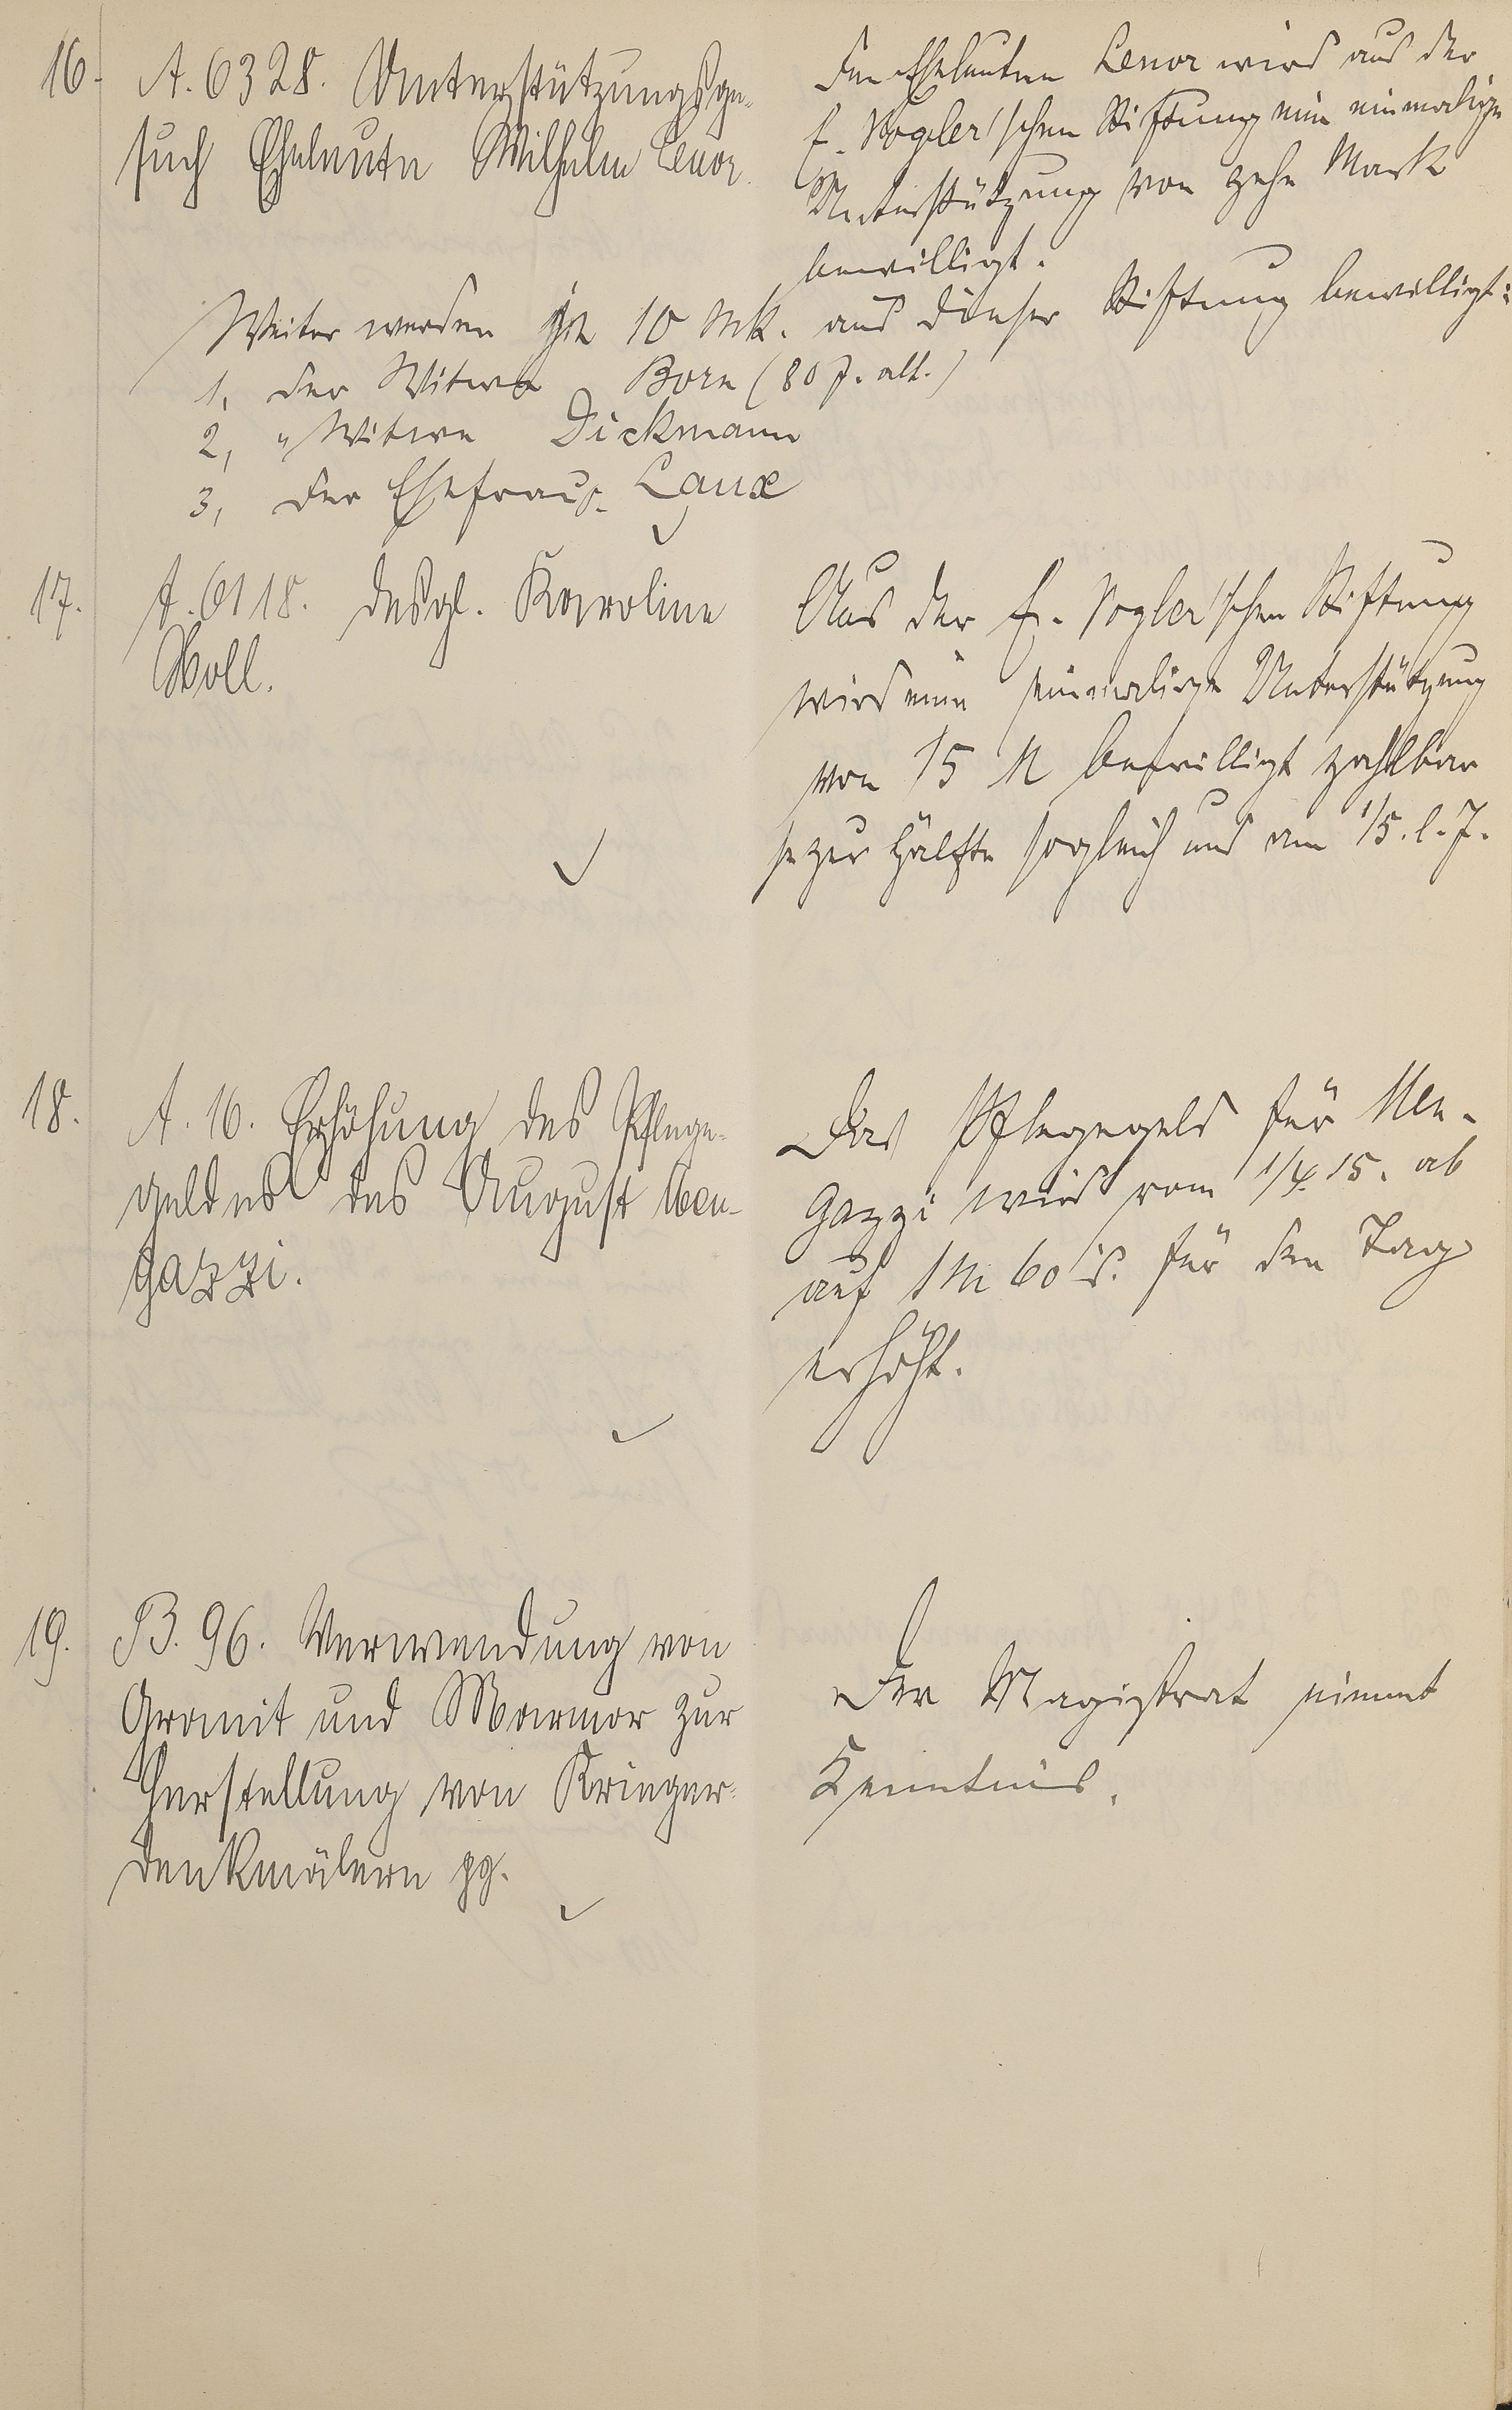 16. A. 6328. Unterstützungsge-
such Eheleute Wilhelm Lenor.
Den Eheleuten Lenor wird aus der
E. Vogler'schen Stiftung eine einmalige
Unterstützung von zehn Mark
bewilligt.
Weiter werden je 10 Mk. aus dieser Stiftung bewilligt:
1, der Witwe Born (80 J. alt.)
2, " Witwe Dickmann
3, der Ehefrau Laux
17. A. 6118. desgl. Karoline
Woll.
Aus der E. Vogler'schen Stiftung
wird eine einmalige Unterstützung
von 15 M bewilligt zahlbar
je zur Hälfte sogleich und am 1/5. l. J.
18. A. 16. Erhöhung des Pflege-
geldes des August Men-
gazzi.
Das Pflegegeld für Men-
gazzi wird vom 1/4. 15. ab
auf 1 M 60 d. für den Tag
erhöht.
19. B. 96. Verwendung von
Granit und Marmor zur
Herstellung von Krieger-
denkmälern pp.
Der Magistrat nimmt
Kenntnis.